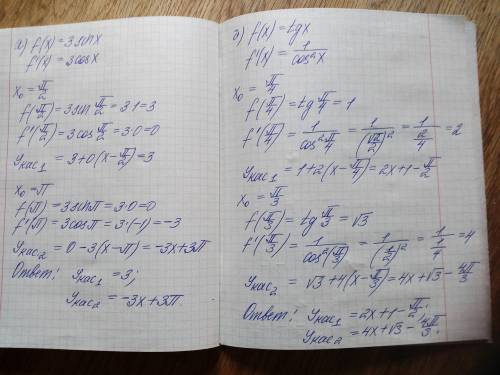 а) f(x) = 3sinx
f'(x) = 3cosx
x₀ = π/2
f(π/2) = 3sin π/2 = 3·1 = 3
f'(π/2) = 3cos π/2 = 3·0 = 0
yкас₁ = 3+0(x-π/2) = 3
x₀ = π
f(π) = 3sinπ = 3·0 = 0
f'(π) = 3cosπ = 3·(-1) = -3
yкас₂ = 0-3(x-π) = -3x+3π
Ответ: yкас₁ = 3;
yкас₂ = -3x+3π.
б) f(x) = tgx
f'(x) = 1/cos²x
x₀ = π/4
f(π/4) = tg π/4 = 1
f'(π/4) = 1/cos² π/4 = 1/(√2/2)² = 1/(2/4) = 2
yкас₁ = 1+2(x-π/4) = 2x+1-π/2
x₀ = π/3
f(π/3) = tg π/3 = √3
f'(π/3) = 1/cos²(π/3) = 1/(1/2)² = 1/(1/4) = 4
yкас₂ = √3+4(x-π/3) = 4x+√3-4π/3
Ответ: yкас₁ = 2x+1-π/2;
yкас₂ = 4x+√3-4π/3.